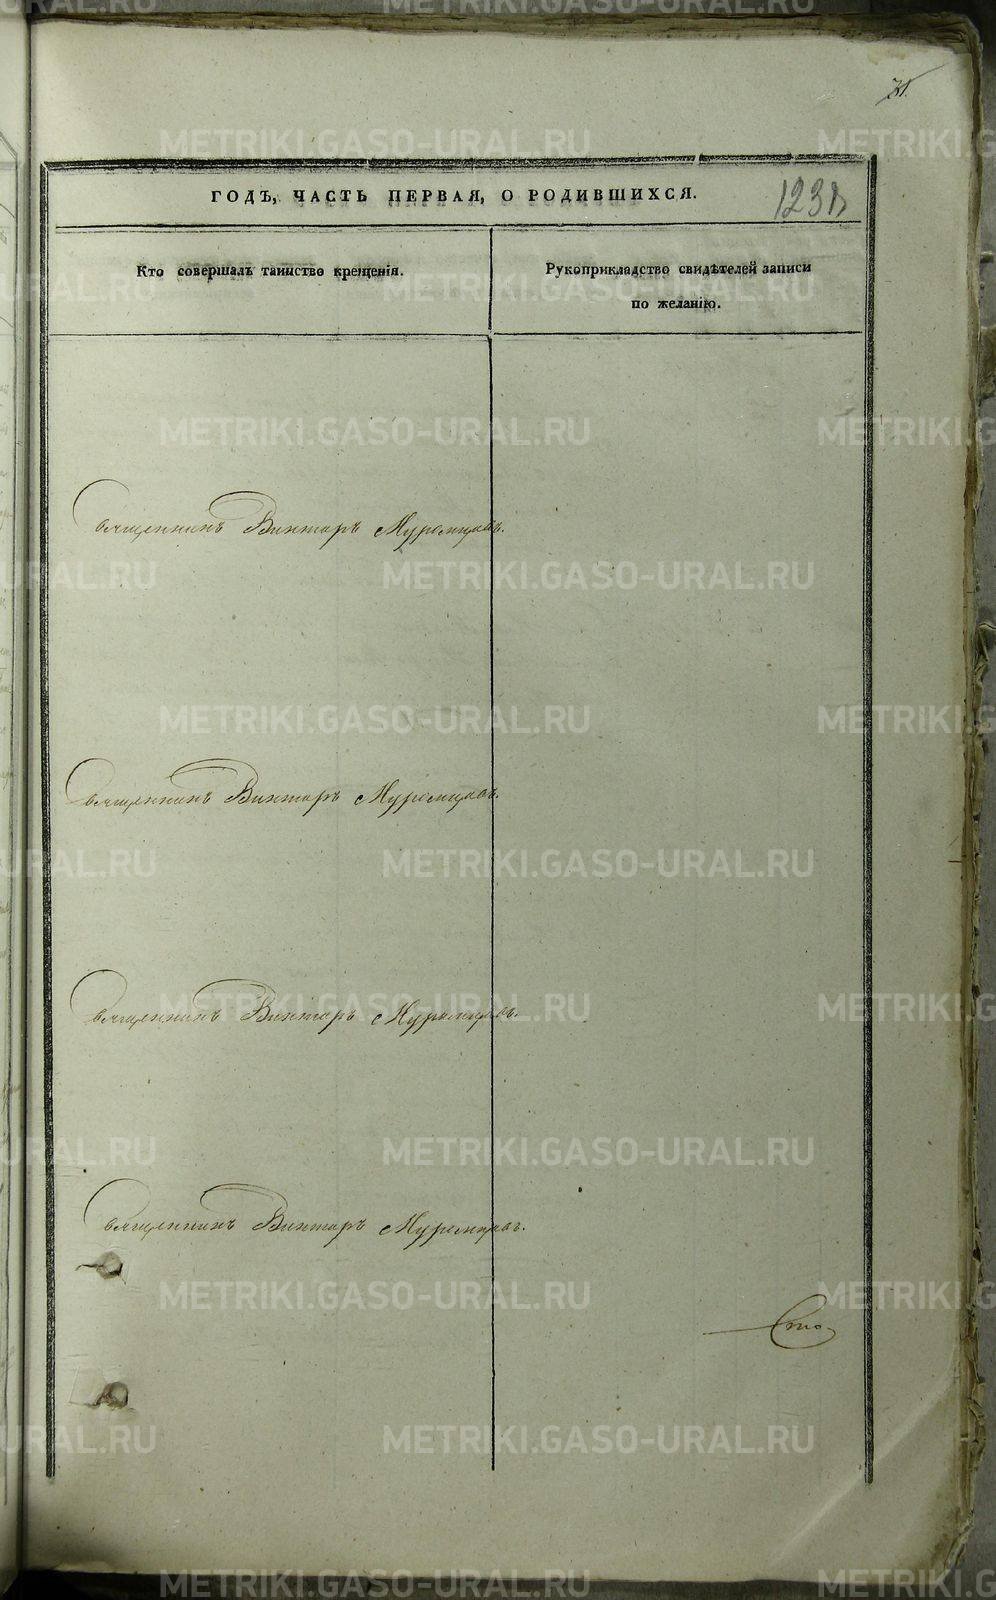 31.
ГОДЪ, ЧАСТЬ ПЕРВАЯ, О РОДИВШИХСЯ.
Кто совершалъ таинство крещенія.
Рукоприкладство свидѣтелей записи
по желанію.
Священникъ Викторъ Муромцовъ.
Священникъ Викторъ Муромцовъ.
Священникъ Викторъ Муромцовъ.
Священникъ Викторъ Муромцовъ.
Сто
METRIKI.GASO-URAL.RU